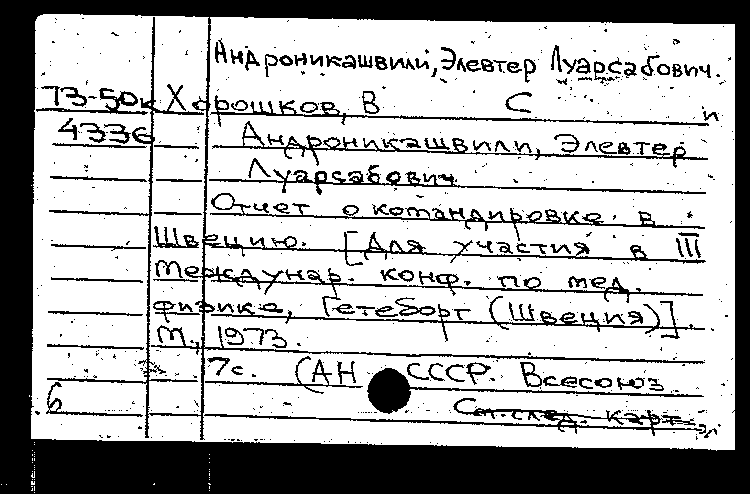 Андроникашвили, Элевтер Луарсабович.
73-50к Хорошков, В С и
4336 Андроникашвили, Элевтер
Луарсабович
Отчет о командировке в
Швецию. [Для участия в III
Междунар. конф. по мед.
физике, Гетеборг (Швеция)].
М., 1973.
7с. (АН СССР. Всесоюз.
6 См. след. карт.